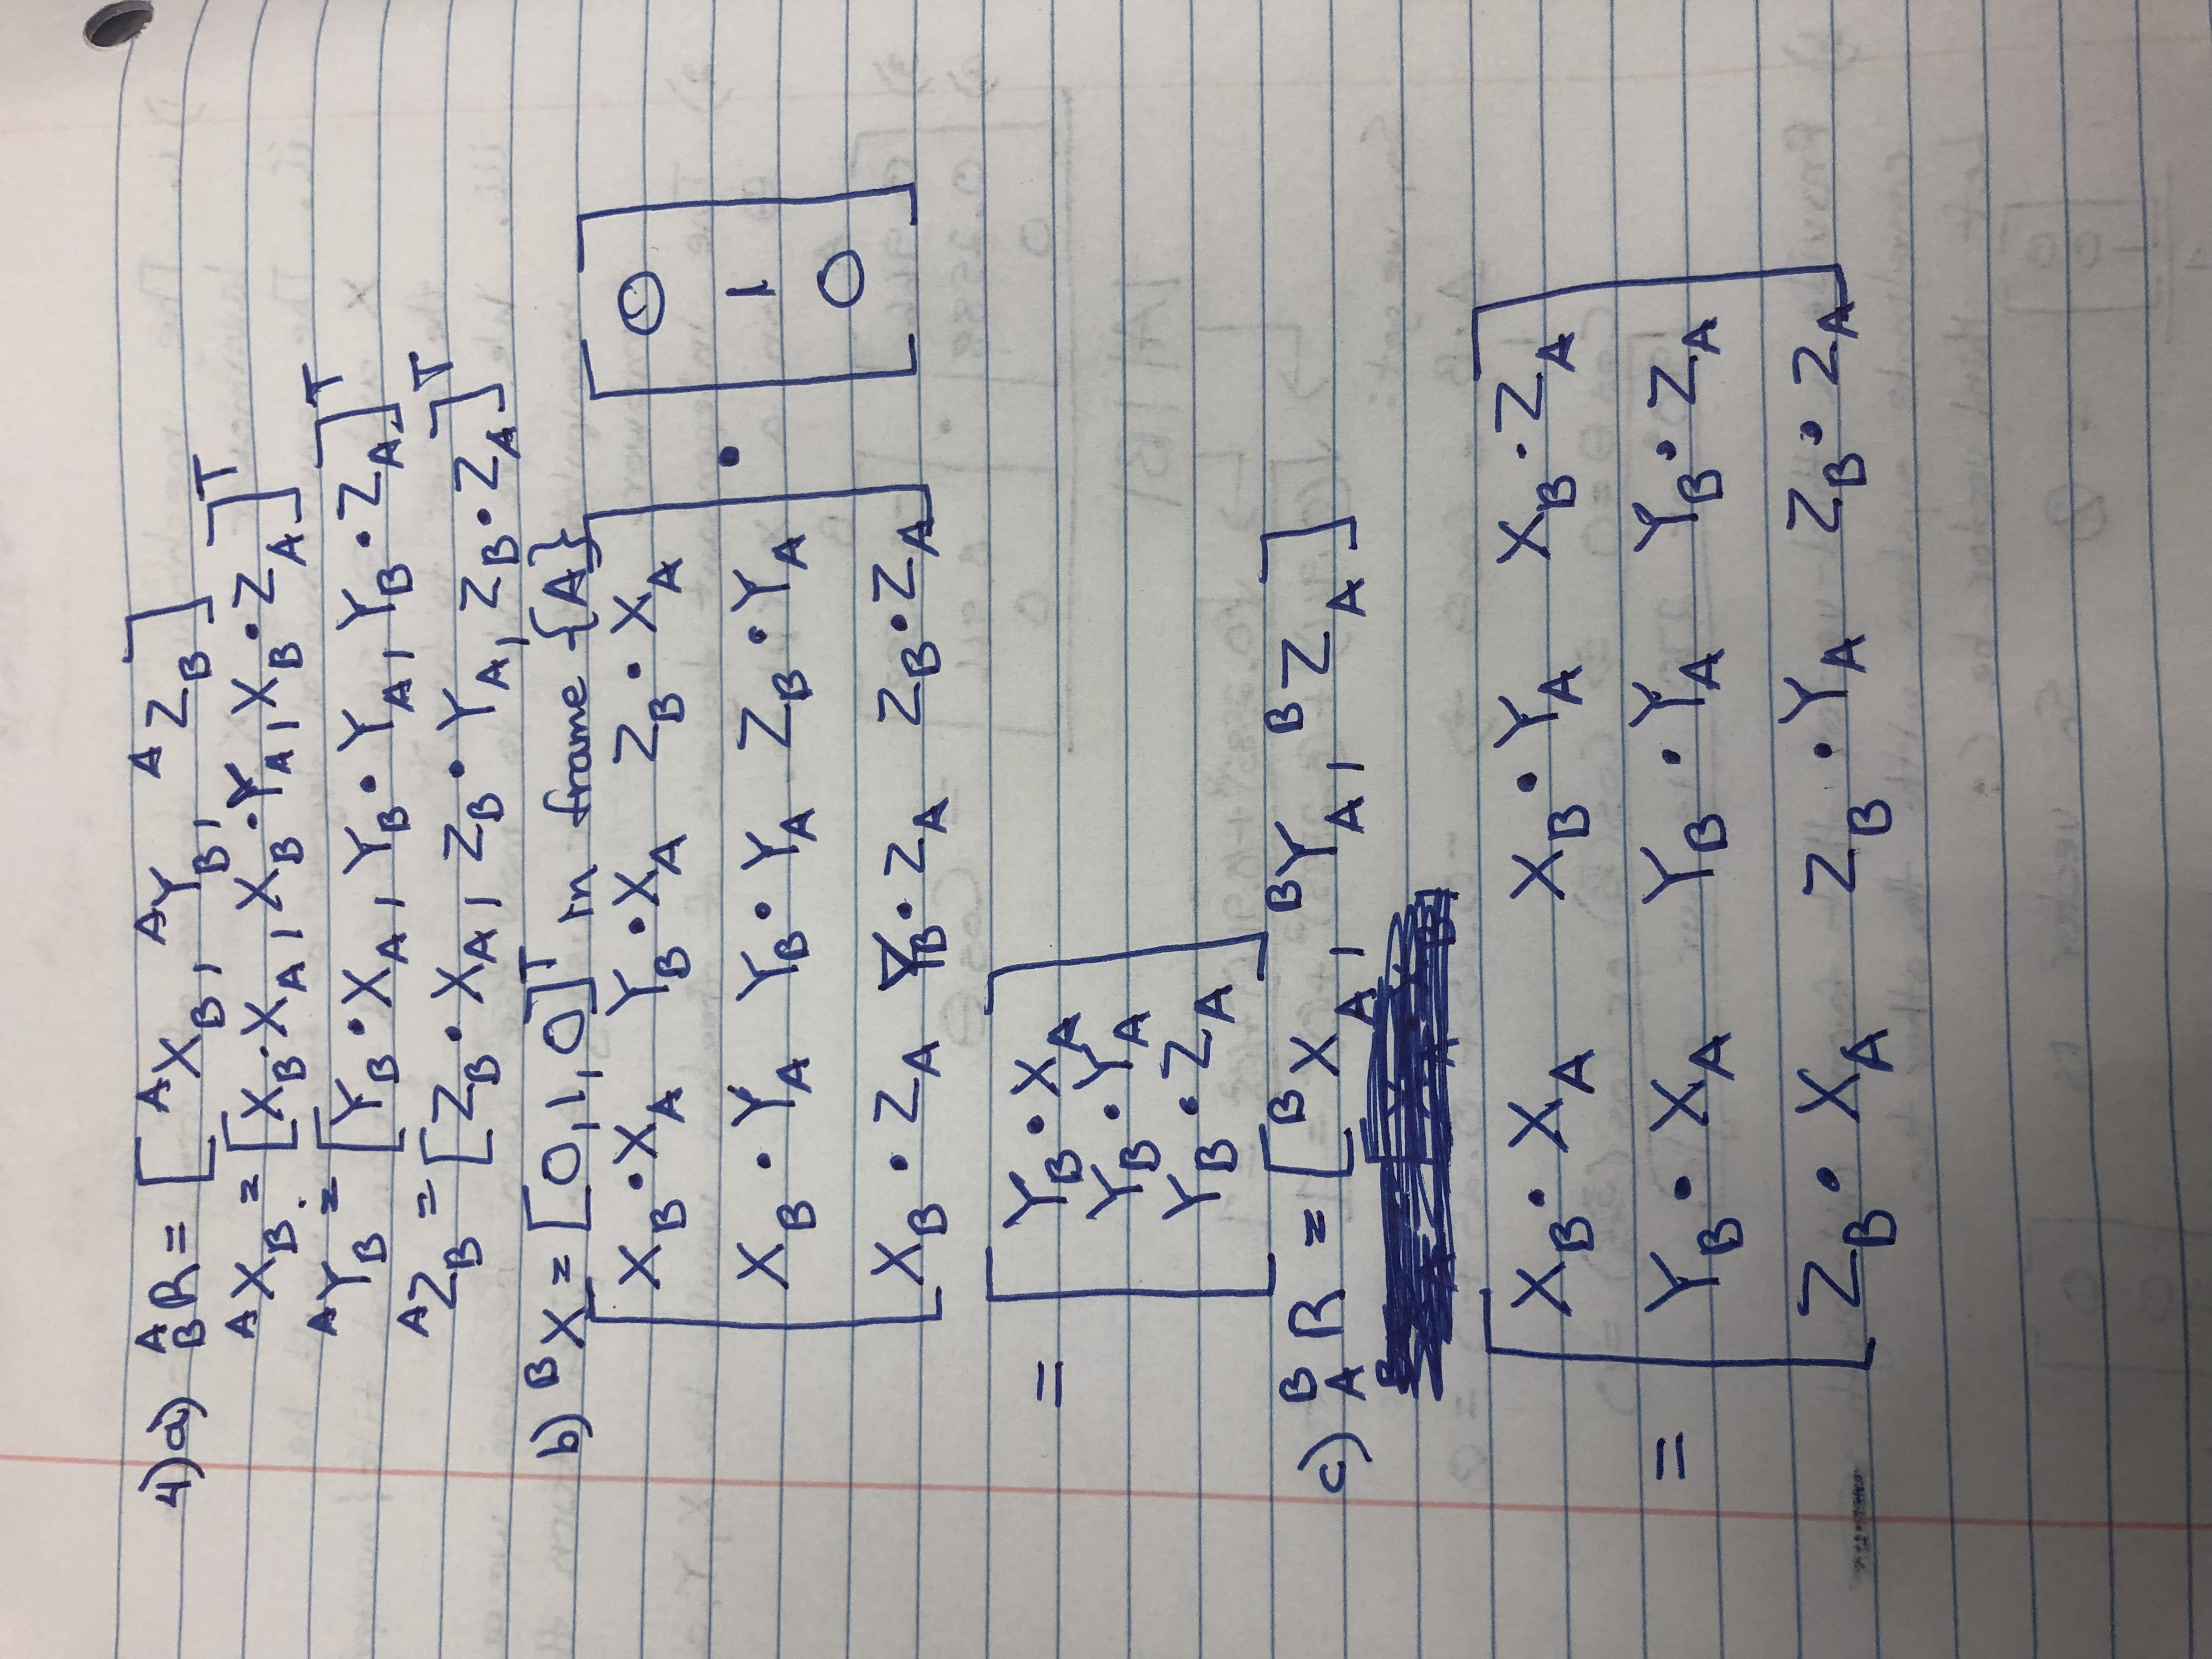 4) a) ᴬ_B R = [ ᴬX_B, ᴬY_B, ᴬZ_B ]
ᴬX_B = [X_B·X_A, X_B·Y_A, X_B·Z_A]ᵀ
ᴬY_B = [Y_B·X_A, Y_B·Y_A, Y_B·Z_A]ᵀ
ᴬZ_B = [Z_B·X_A, Z_B·Y_A, Z_B·Z_A]ᵀ
b) ᴮX = [0, 1, 0]ᵀ in frame {A}
[ X_B·X_A Y_B·X_A Z_B·X_A ] [ 0 ]
[ X_B·Y_A Y_B·Y_A Z_B·Y_A ] · [ 1 ]
[ X_B·Z_A Y_B·Z_A Z_B·Z_A ] [ 0 ]
= [ Y_B·X_A ]
[ Y_B·Y_A ]
[ Y_B·Z_A ]
c) ᴮ_A R = [ ᴮX_A, ᴮY_A, ᴮZ_A ]
[ X_B·X_A X_B·Y_A X_B·Z_A ]
= [ Y_B·X_A Y_B·Y_A Y_B·Z_A ]
[ Z_B·X_A Z_B·Y_A Z_B·Z_A ]